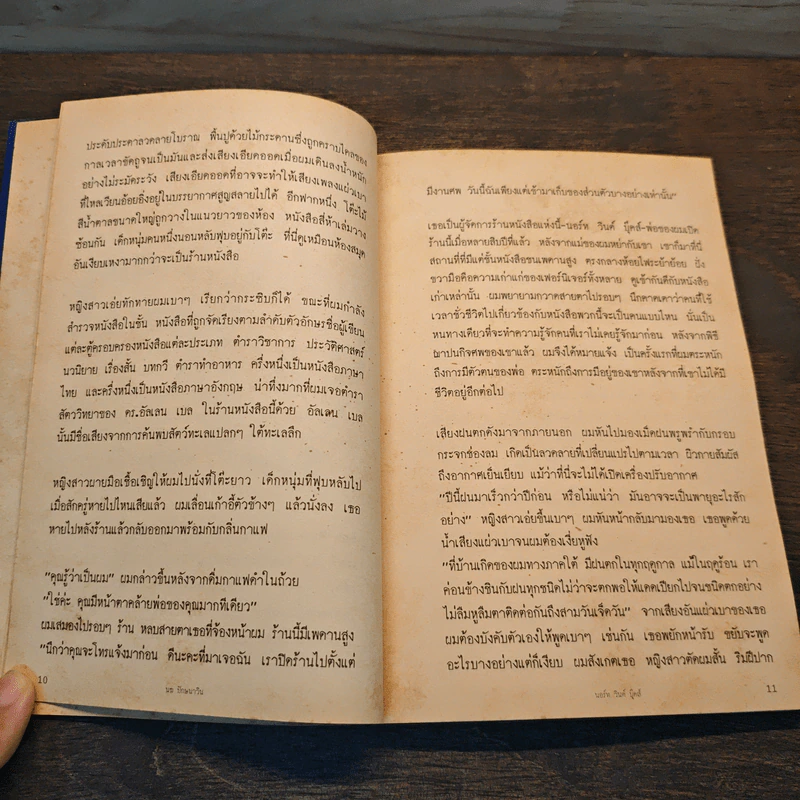 ประดับประดาลวดลายโบราณ พื้นปูด้วยไม้กระดานซึ่งถูกคราบไคลของ
กาลเวลาขัดถูจนเป็นมันและส่งเสียงเอียดออดเมื่อผมเดินลงน้ำหนัก
อย่างไม่ระมัดระวัง เสียงเอียดออดที่อาจจะทำให้เสียงเพลงแผ่วเบา
ที่ไหลเวียนอ้อยอิ่งอยู่ในบรรยากาศสูญสลายไปได้ อีกฟากหนึ่ง โต๊ะไม้
สีน้ำตาลขนาดใหญ่ถูกวางในแนวยาวของห้อง หนังสือสี่ห้าเล่มวาง
ซ้อนกัน เด็กหนุ่มคนหนึ่งนอนหลับฟุบอยู่กับโต๊ะ ที่นี่ดูเหมือนห้องสมุด
อันเงียบเหงามากกว่าจะเป็นร้านหนังสือ
หญิงสาวเอ่ยทักทายผมเบาๆ เรียกว่ากระซิบก็ได้ ขณะที่ผมกำลัง
สำรวจหนังสือในชั้น หนังสือที่ถูกจัดเรียงตามลำดับตัวอักษรชื่อผู้เขียน
แต่ละตู้ครอบครองหนังสือแต่ละประเภท ตำราวิชาการ ประวัติศาสตร์
นวนิยาย เรื่องสั้น บทกวี ตำราทำอาหาร ครึ่งหนึ่งเป็นหนังสือภาษา
ไทย และครึ่งหนึ่งเป็นหนังสือภาษาอังกฤษ น่าทึ่งมากที่ผมเจอตำรา
สัตววิทยาของ ดร.อัลเลน เบล ในร้านหนังสือนี้ด้วย อัลเลน เบล
นั้นมีชื่อเสียงจากการค้นพบสัตว์ทะเลแปลกๆ ใต้ทะเลลึก
หญิงสาวผายมือเชื้อเชิญให้ผมไปนั่งที่โต๊ะยาว เด็กหนุ่มที่ฟุบหลับไป
เมื่อสักครู่หายไปไหนเสียแล้ว ผมเลื่อนเก้าอี้ตัวข้างๆ แล้วนั่งลง เธอ
หายไปหลังร้านแล้วกลับออกมาพร้อมกับกลิ่นกาแฟ
"คุณรู้ว่าเป็นผม" ผมกล่าวขึ้นหลังจากดื่มกาแฟดำในถ้วย
"ใช่ค่ะ คุณมีหน้าตาคล้ายพ่อของคุณมากทีเดียว"
ผมเสมองไปรอบๆ ร้าน หลบสายตาเธอที่จ้องหน้าผม ร้านนี้มีเพดานสูง
"นึกว่าคุณจะโทรแจ้งมาก่อน ดีนะคะที่มาเจอฉัน เราปิดร้านไปตั้งแต่
10
นฆ ปักษนาวิน
มีงานศพ วันนี้ฉันเพียงแต่เข้ามาเก็บของส่วนตัวบางอย่างเท่านั้น"
เธอเป็นผู้จัดการร้านหนังสือแห่งนี้-นอร์ท วินด์ บุ๊คส์-พ่อของผมเปิด
ร้านนี้เมื่อหลายสิบปีที่แล้ว หลังจากแม่ของผมหย่ากับเขา เขาก็มาที่นี่
สถานที่ที่มีแต่ชั้นหนังสือชนเพดานสูง ตรงกลางห้อยไฟระย้าย้อย ฝั่ง
ขวามือคือความเก่าแก่ของเฟอร์นิเจอร์ทั้งหลาย ดูเข้ากันดีกับหนังสือ
เก่าเหล่านั้น ผมพยายามกวาดสายตาไปรอบๆ นึกคาดเดาว่าคนที่ใช้
เวลาชั่วชีวิตไปเกี่ยวข้องกับหนังสือพวกนี้จะเป็นคนแบบไหน นั่นเป็น
หนทางเดียวที่จะทำความรู้จักคนที่เราไม่เคยรู้จักมาก่อน หลังจากพิธี
ฌาปนกิจศพของเขาแล้ว ผมจึงได้หมายแจ้ง เป็นครั้งแรกที่ผมตระหนัก
ถึงการมีตัวตนของพ่อ ตระหนักถึงการมีอยู่ของเขาหลังจากที่เขาไม่ได้มี
ชีวิตอยู่อีกต่อไป
เสียงฝนตกดังมาจากภายนอก ผมหันไปมองเม็ดฝนพรูพรำกับกรอบ
กระจกช่องลม เกิดเป็นลวดลายที่เปลี่ยนแปรไปตามเวลา ผิวกายสัมผัส
ถึงอากาศเย็นเยียบ แม้ว่าที่นี่จะไม่ได้เปิดเครื่องปรับอากาศ
"ปีนี้ฝนมาเร็วกว่าปีก่อน หรือไม่แน่ว่า มันอาจจะเป็นพายุอะไรสัก
อย่าง" หญิงสาวเอ่ยขึ้นเบาๆ ผมหันหน้ากลับมามองเธอ เธอพูดด้วย
น้ำเสียงแผ่วเบาจนผมต้องเงี่ยหูฟัง
"ที่บ้านเกิดของผมทางภาคใต้ มีฝนตกในทุกฤดูกาล แม้ในฤดูร้อน เรา
ค่อนข้างชินกับฝนทุกชนิดไม่ว่าจะตกพอให้แดดเปียกไปจนชนิดตกอย่าง
ไม่ลืมหูลืมตาติดต่อกันถึงสามวันเจ็ดวัน" จากเสียงอันแผ่วเบาของเธอ
ผมต้องบังคับตัวเองให้พูดเบาๆ เช่นกัน เธอพยักหน้ารับ ขยับจะพูด
อะไรบางอย่างแต่ก็เงียบ ผมสังเกตเธอ หญิงสาวตัดผมสั้น ริมฝีปาก
นอร์ท วินด์ บุ๊คส์
11